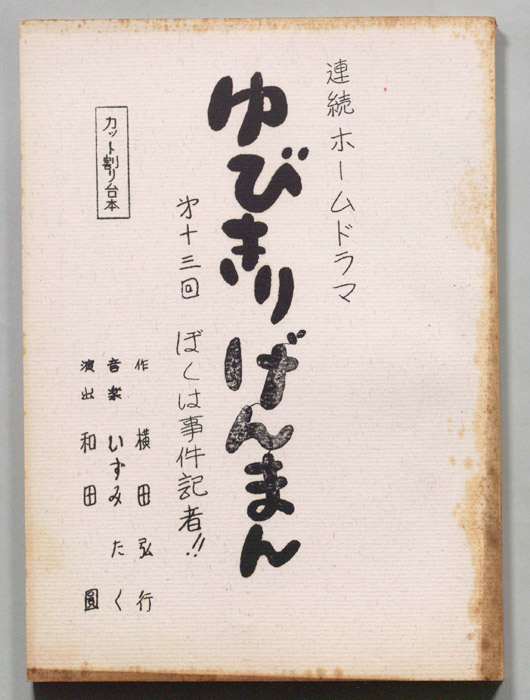 連続ホームドラマ
ゆびきりげんまん
第十三回 ぼくは事件記者!!
カット割り台本
作 横田弘行
音楽 いずみたく
演出 和田 圓